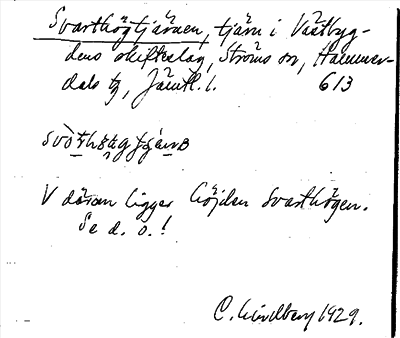 Svarthögtjärnen, tjärn i Västbyg-
dens skifteslag, Ströms sn, Hammer-
dals tg, Jämtl. l. 613
V däran ligger höjden Svarthögen.
Se d. o.!
C. Lindberg 1929.